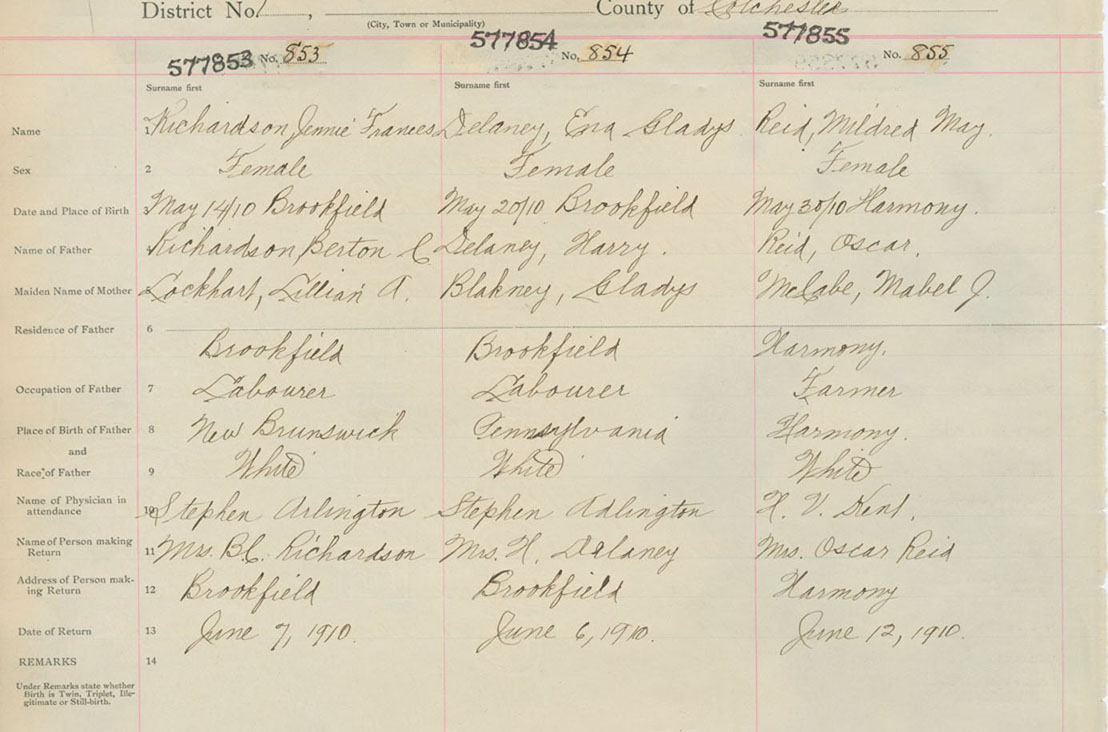 District No. 1 , County of Colchester
(City, Town or Municipality)
577853 No. 853 577854 No. 854 577855 No. 855
Surname first Surname first Surname first
Name 1 Richardson, Jennie Frances Delaney, Ena Gladys Reid, Mildred May.
Sex 2 Female Female Female
Date and Place of Birth May 14/10 Brookfield May 20/10 Brookfield May 30/10 Harmony.
Name of Father Richardson, Berton C Delaney, Harry. Reid, Oscar.
Maiden Name of Mother 5 Lockhart, Lillian A. Blakney, Gladys McCabe, Mabel J.
Residence of Father 6
Brookfield Brookfield Harmony.
Occupation of Father 7 Labourer Labourer Farmer
Place of Birth of Father 8 New Brunswick Pennsylvania Harmony.
and
Race of Father 9 White White White
Name of Physician in
attendance 10 Stephen Arlington Stephen Adlington H. V. Kent.
Name of Person making
Return 11 Mrs. B.C. Richardson Mrs. H. Delaney Mrs. Oscar Reid
Address of Person mak-
ing Return 12 Brookfield Brookfield Harmony
Date of Return 13 June 7, 1910. June 6, 1910. June 12, 1910.
REMARKS 14
Under Remarks state whether
Birth is Twin, Triplet, Ille-
gitimate or Still-birth.